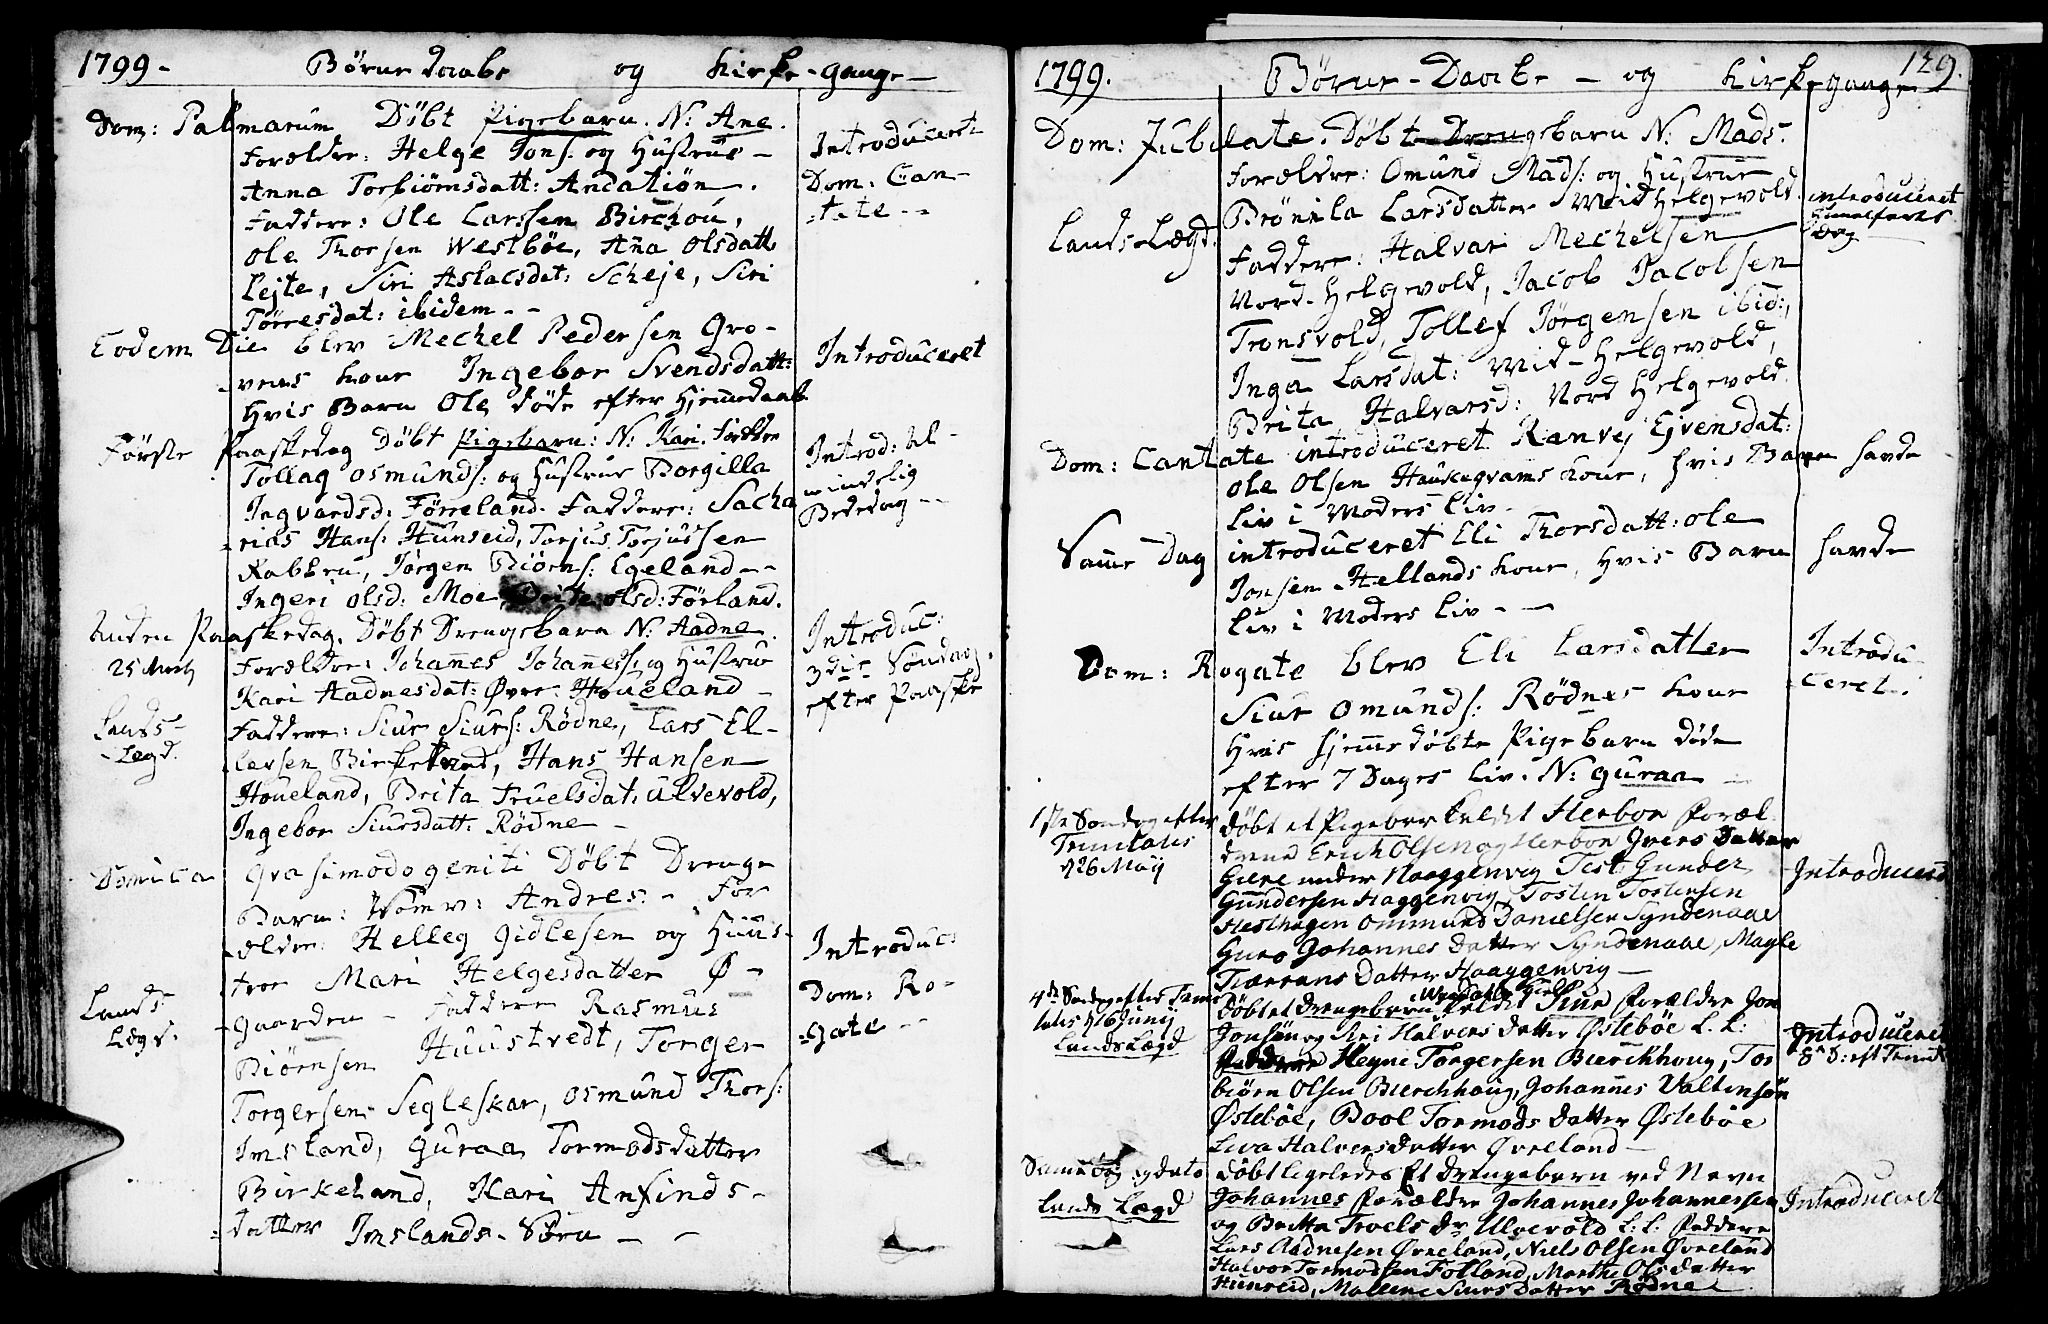 1799 - Börne daabe og Kirke-gange -
Dom: Palmarum Döbt Pigebarn. N: Ane.
Forældre: Helge Jons: og Hustrue -
Anna Torbiörnsdatt:
Faddere: Ole Larssen Birchou,
Ole Thorsen Westböe, Aña Olsdatt:
Lejte, Siri Aslacsdat: Scheje, Siri
Törresdat: ibidem - -
Introduceret
Dom: Can-
tate - -
Eodem Die blev Mechel Pedersen Gro-
vens Kone Ingebor Svendsdatt:
Hvis Barn Ole döde efter Hjemmedaab
Introduceret
Förste Paaskedag Döbt Pigebarn: N: Kari. Foreldre
Tollag Osmunds: og Hustrue Borgilla
Ingvardsd: Förreland. Faddere: Sacha
rias Hans: Hunseid, Torjus Torjussen
Kabbru, Jörgen Biörns: Egeland - -
Ingeri Olsd: Moe, Olsd: Förland.
Introd: Al-
mindelig
Bededag - -
Anden Paaskedag. Döbt Drengebarn N: Aadne.
25 Marts
Forældre: Johañes Johañess: og Hustrue
Kari Aadnesdat: Øvre: Höueland -
Lands-
Legd.
Faddere: Siur Siurs: Rödne, Lars El-
lersen Birkeland, Hans Hansen
Höueland, Brita Truelsdat: Ulvevold,
Ingebor Siursdatt: Rödne -
Introduc:
3die Söndag
efter Paaske
Dominica Qvasimodogeniti Döbt Drenge
Barn: Andres. - For
ældre: Helleg Gidlesen og Huus-
troe Mari Helgesdatter Ø-
Lands
Legd.
gaarden - Faddere Rasmus
Biörnsen Huustvedt, Torger
Torgersen Segleskar, Osmund Thors:
Imsland, Guraa Tormodsdatter
Birkeland, Kari Anfinds-
datter Imslands-
Introduc:
Dom: Ro-
gate - -
1799. Börne-Daabe - og Kirkegange 129.
Dom: Jubilate. Döbt Drengebarn N: Mads.
Forældre: Omund Mads: og Hustrue
Brönnla Larsdatter Mid Helgevold.
Lands Legd.
Faddere: Halvar Mechelsen
Nord-Helgevold, Jacob Jacobsen
Tronsvold, Tollef Jörgensen ibid:,
Inga Larsdat: Mid-Helgevold,
Brita Halvarsd: Nord Helgevold.
introduceret
Himelfarts
Dag
Dom: Cantate introduceret Ranvej Ejvensdat:
Ole Olsen Haukegvams Kone, hvis Barn havde
Liv i Moders Liv -
Samme Dag introduceret Eli Thorsdatt: Ole
Jonsen Hellands Kone, hvis Barn havde
Liv i Moders Liv - -
Dom: Rogate blev Eli Larsdatter
Siur Omunds: Rödnes Kone
Hvis hjemmedöbte Pigebarn döde
efter 7 Dages Liv. N: Guraa -
Introdu-
ceret.
1ste Söndag efter
Trinitatis
d 26 Maij
döbt et Pigebarn kaldet Herbor Foræl
drene Erich Olsen og Herbor Ivers Datter
Giere under Haaggenvig Test: Gunder
Gundersen Haggenvig, Tosten Tostensen
Hesthagen Ommund Danielsen Syndenaae
Guro Johannes Datter Syndenaae, Magle
Datter Haaggenvig -
Introduceret
4de Söndag efter Trini
tatis d 16 Junij
Lands Lægd
Döbt et Drengebarn kaldet Siur Forældre Jon
Jonsön og Ari Halvers Datter Østeböe L: L:
Faddere Heyne Torgersen Bierckhoug, Tor
biörn Olsen Bierchhaug, Johannes Valtinsön
Østeböe, Bool Tormods Datter Østeböe
Liva Halvers Datter Øvreland -
Introduceret
8 S: eft Trinit
Samme Dag og dato
Lands Lægd
döbt ligeledes Et Drengebarn ved Navn
Johannes Forældre Johannes Johannessen
og Britta Troels Dr Ulvevold L: L: Faddere
Lars Aadnesen Øvreland, Niels Olsen Øvreland
Halvor Tormodsen Fotland, Marthe Ols Datter
Hunseid, Mallene Siurs Datter Rödne
Introduceret